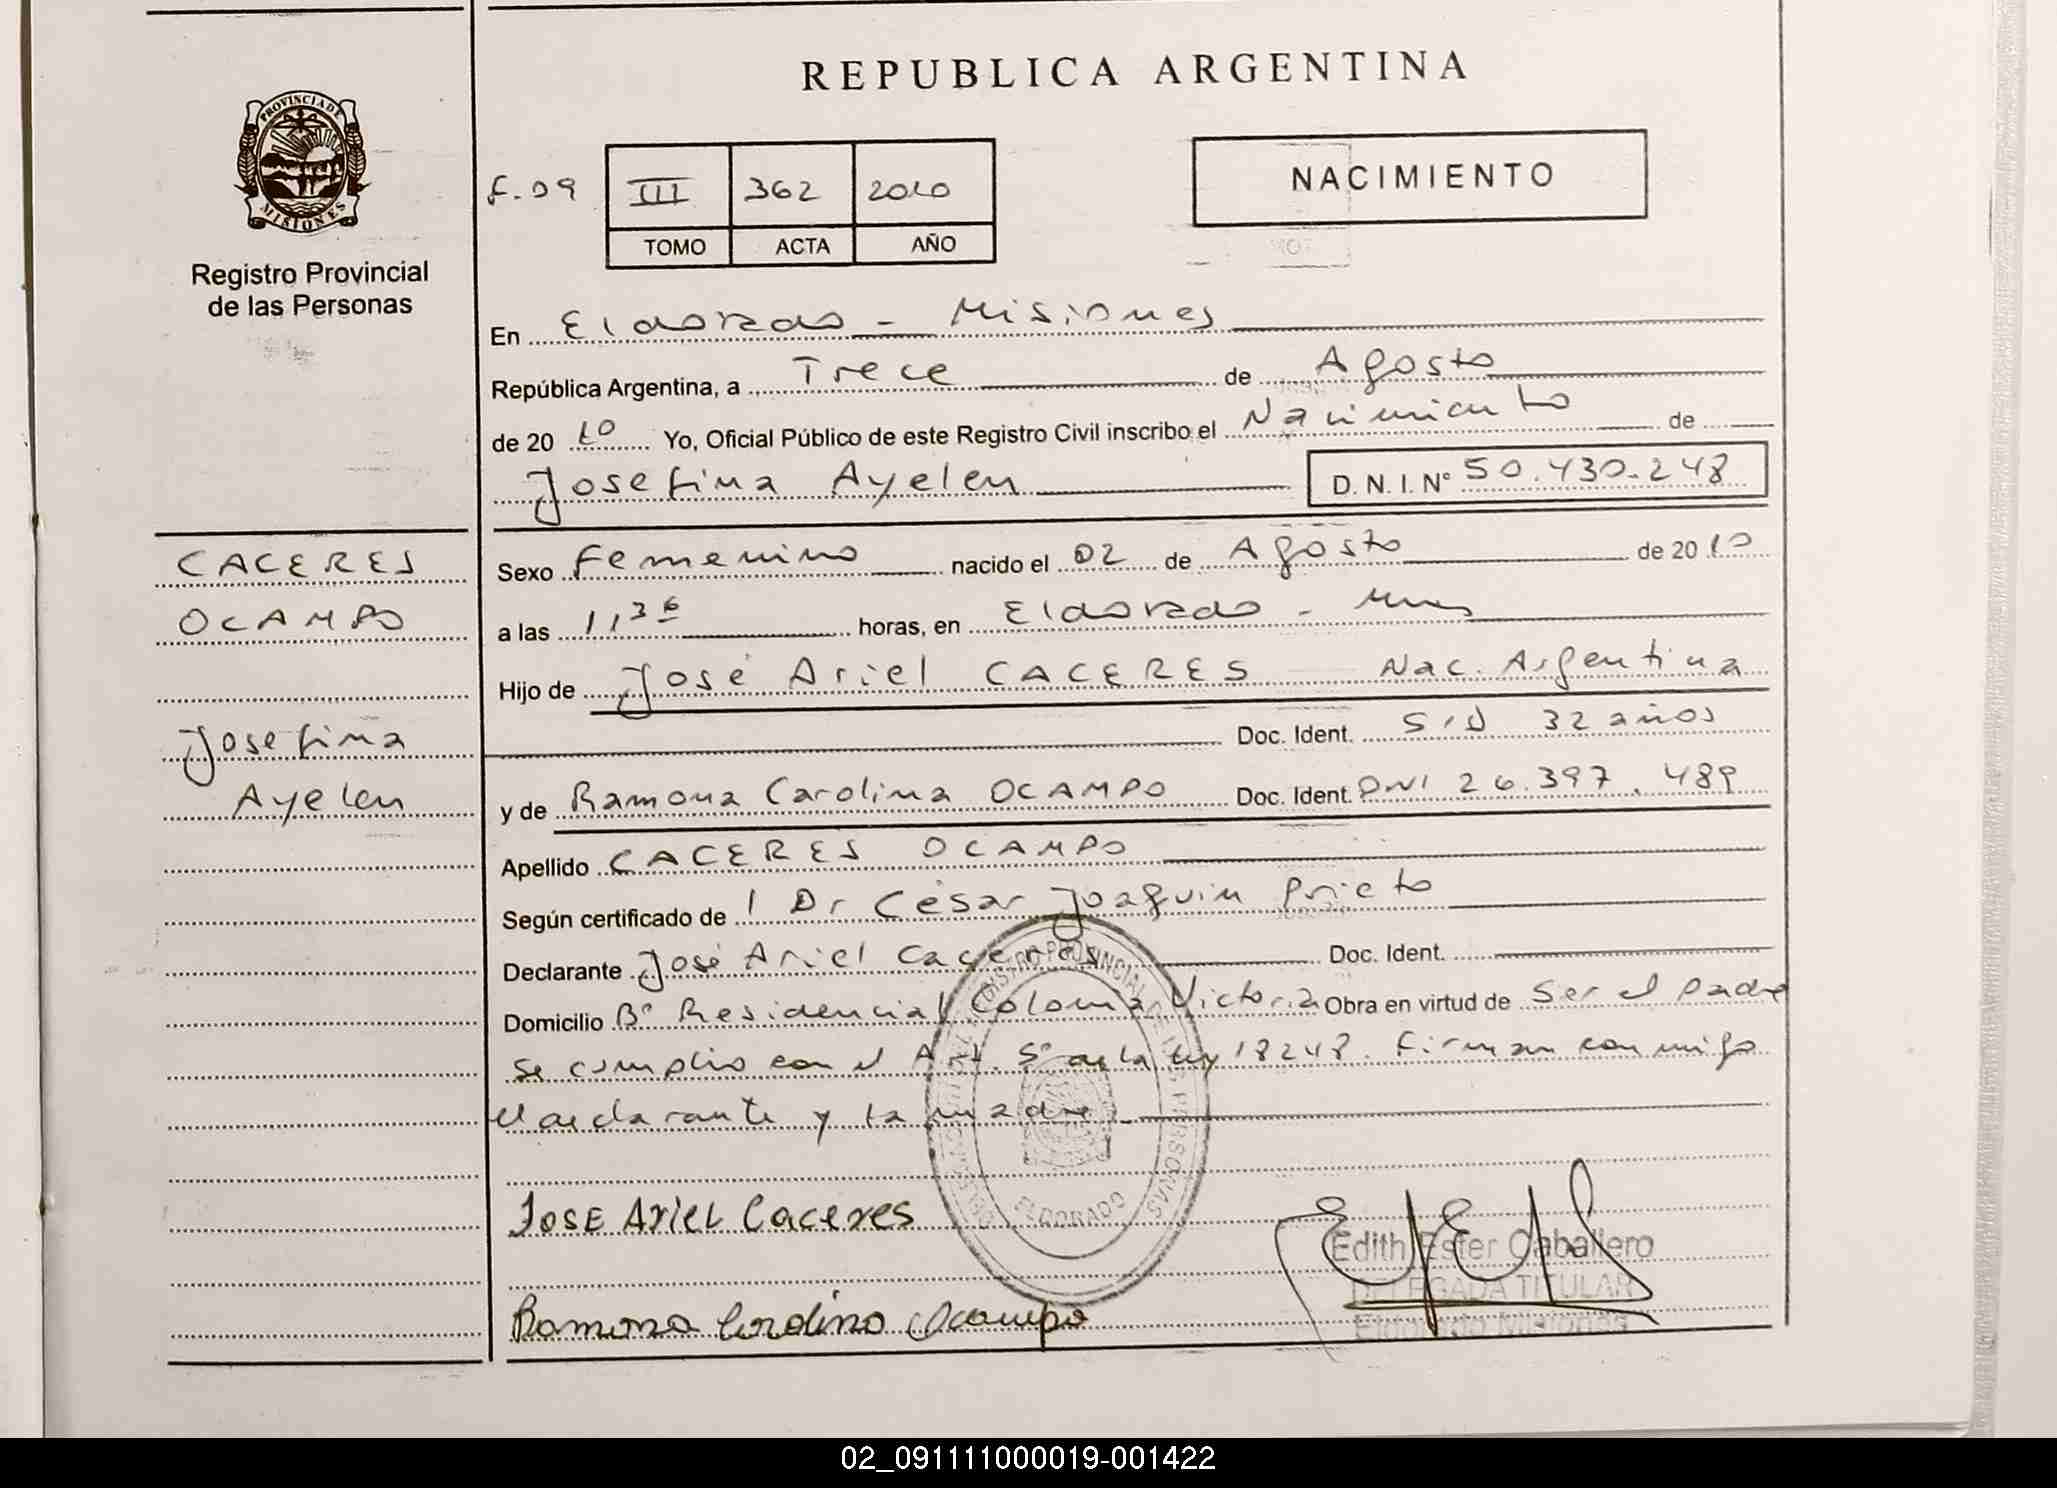 REPUBLICA ARGENTINA
PROVINCIA DE
MISIONES
Registro Provincial
de las Personas
F. 09 III 362 2010
TOMO ACTA AÑO
NACIMIENTO
En Eldorado - Misiones
República Argentina, a Trece de Agosto
de 20 10 Yo, Oficial Público de este Registro Civil inscribo el Nacimiento de
Josefina Ayelen D. N. I. Nº 50.430.248
CACERES
OCAMPO
Josefina
Ayelen
Sexo Femenino nacido el 02 de Agosto de 20 10
a las 11,36 horas, en Eldorado - Mnes
Hijo de José Ariel CACERES Nac. Argentina
Doc. Ident. S/D 32 años
y de Ramona Carolina OCAMPO Doc. Ident. DNI 26.397.489
Apellido CACERES OCAMPO
Según certificado de l Dr César Joaquin Prieto
Declarante José Ariel Caceres Doc. Ident.
Domicilio Bº Residencial Colonia Victoria Obra en virtud de Ser el padre
Se cumplio con el Art. 5º de la ley 18248. Firman conmigo
el declarante y la madre.
REGISTRO PROVINCIAL DE LAS PERSONAS
ELDORADO
Jose Ariel Caceres
Edith Ester Caballero
DELEGADA TITULAR
Eldorado Misiones
Ramona Carolina Ocampo
02_091111000019-001422